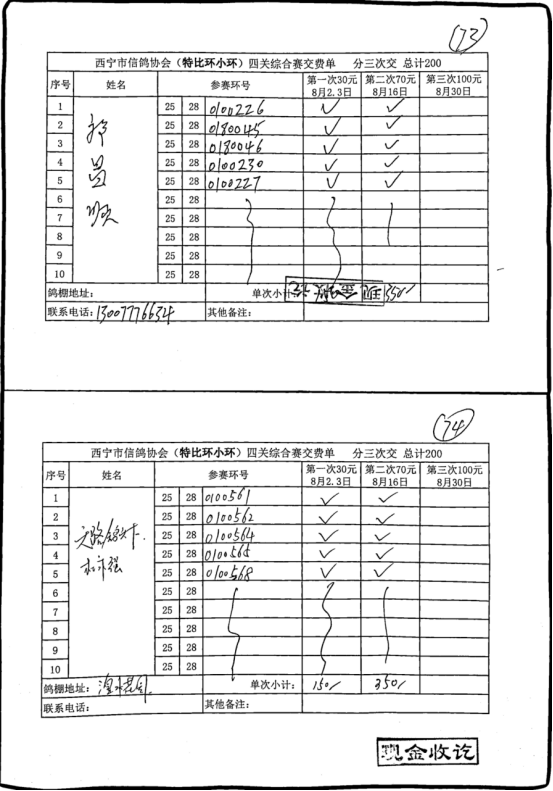 (73)
西宁市信鸽协会（特比环小环）四关综合赛交费单 分三次交 总计200
序号 姓名 参赛环号 第一次30元 8月2.3日 第二次70元 8月16日 第三次100元 8月30日
1 25 28 0100226 ✓ ✓
2 25 28 0180045 ✓ ✓
3 25 28 0180046 ✓ ✓
4 25 28 0100230 ✓ ✓
5 25 28 0100227 ✓ ✓
6 25 28
7 25 28
8 25 28
9 25 28
10 25 28
鸽棚地址： 单次小计： 现金收讫 350/
联系电话：13007776634 其他备注：
(74)
西宁市信鸽协会（特比环小环）四关综合赛交费单 分三次交 总计200
序号 姓名 参赛环号 第一次30元 8月2.3日 第二次70元 8月16日 第三次100元 8月30日
1 25 28 0100561 ✓ ✓
2 25 28 0100562 ✓ ✓
3 25 28 0100564 ✓ ✓
4 25 28 0100565 ✓ ✓
5 25 28 0100568 ✓ ✓
6 25 28
7 25 28
8 25 28
9 25 28
10 25 28
鸽棚地址： 单次小计： 150/ 350/
联系电话： 其他备注：
现金收讫